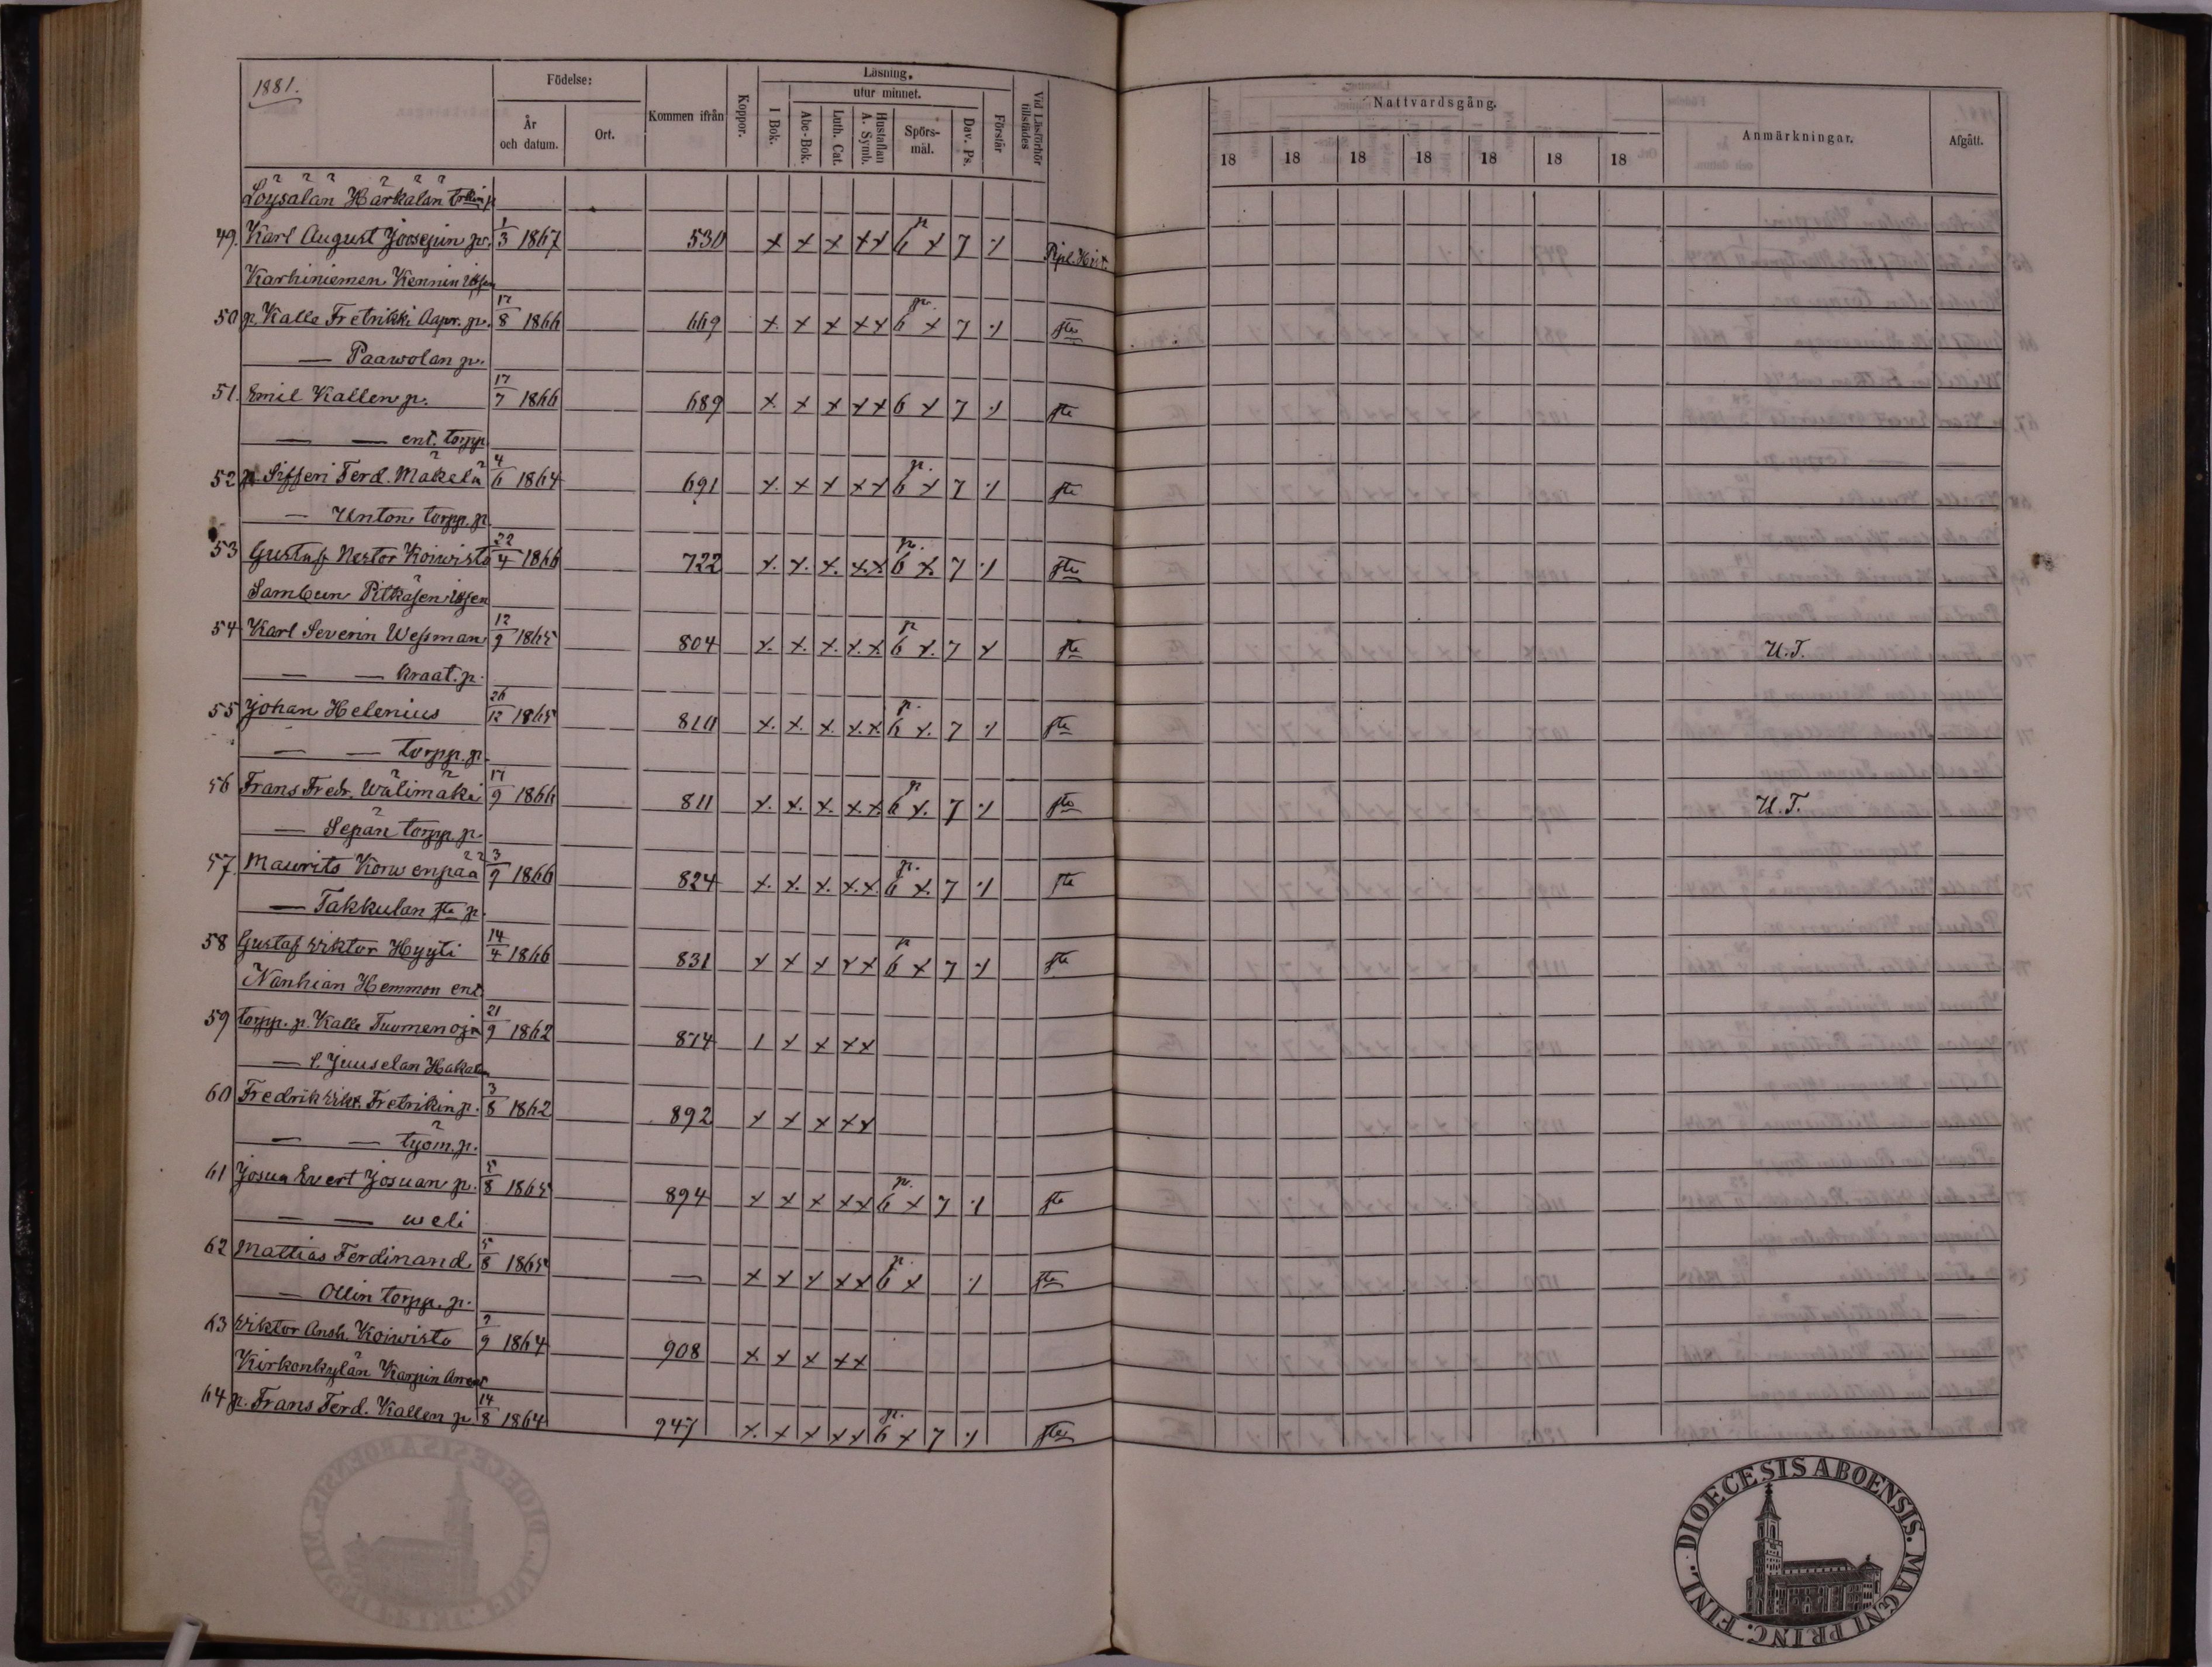 1881.
Födelse:
År och datum.
Ort.
Kommen ifrån
Koppor.
Läsning.
utur minnet.
I Bok.
Abc-Bok.
Luth. Cat.
Hustaflan A. Symb.
Spörs-mål.
Dav. Ps.
Förstår
Vid Läsförhör tillstädes
Nattvardsgång.
18 18 18 18 18 18 18
Anmärkningar.
Afgått.
Löysälän Härkälän
49. Karl August Joosepin p. 1/3 1867 530 x x x x x 6 x 7 Pipl. Hist.
Karhiniemen Kennin
50 p. Kalle Fretrikki Aapr. p. 17/8 1866 669 x x x x x 6 x 7 sta
— Paawolan p.
51. Emil Kallen p. 17/7 1866 689 x x x x x 6 x 7 sta
— — ent. torpp.
52 p. Sifferi Ferd. Mäkelä 4/6 1864 691 x x x x x 6 x 7 sta
— Unton torpp. p.
53 Gustaf Nestor Koiwisto 22/4 1866 722 x x x x x 6 x 7 sta
Sambun Pitkäsen
54 Karl Severin Wessman 12/9 1865 804 x x x x x 6 x 7 x sta U.T.
— — kraat. p.
55 Johan Helenius 26/12 1865 810 x x x x x 6 x 7 sta
— — torpp. p.
56 Frans Fredr. Wälimäki 17/9 1866 811 x x x x x 6 x 7 sta U.T.
— Sepän torpp. p.
57. Maurits Korwenpää 3/9 1866 824 x x x x x 6 x 7 sta
— Takkulan sta p.
58 Gustaf Wiktor Hyyti 14/4 1866 831 x x x x x 6 x 7 sta
Nanhian Hemmon ent.
59 torpp. p. Kalle Tuomenoja 21/9 1862 874 1 x x x x
— l. Juuselan Hakalan
60 Fredrik Wikt. Fretrikin p. 3/8 1862 892 x x x x x
— — työm. p.
61 Josua Evert Josuan p. 5/8 1865 894 x x x x x 6 x 7 sta
— — weli
62 Mattias Ferdinand 5/8 1865 — x x x x x 6 x sta
— Ollin torpp. p.
63 Wiktor Ansh. Koiwisto 9 1864 908 x x x x x
Kirkonkylän Karpin
64 p. Frans Ferd. Kallen p. 14/8 1864 947 x x x x x 6 x 7 sta
DIOECESIS ABOENSIS. MAGNI PRINC. FINL.